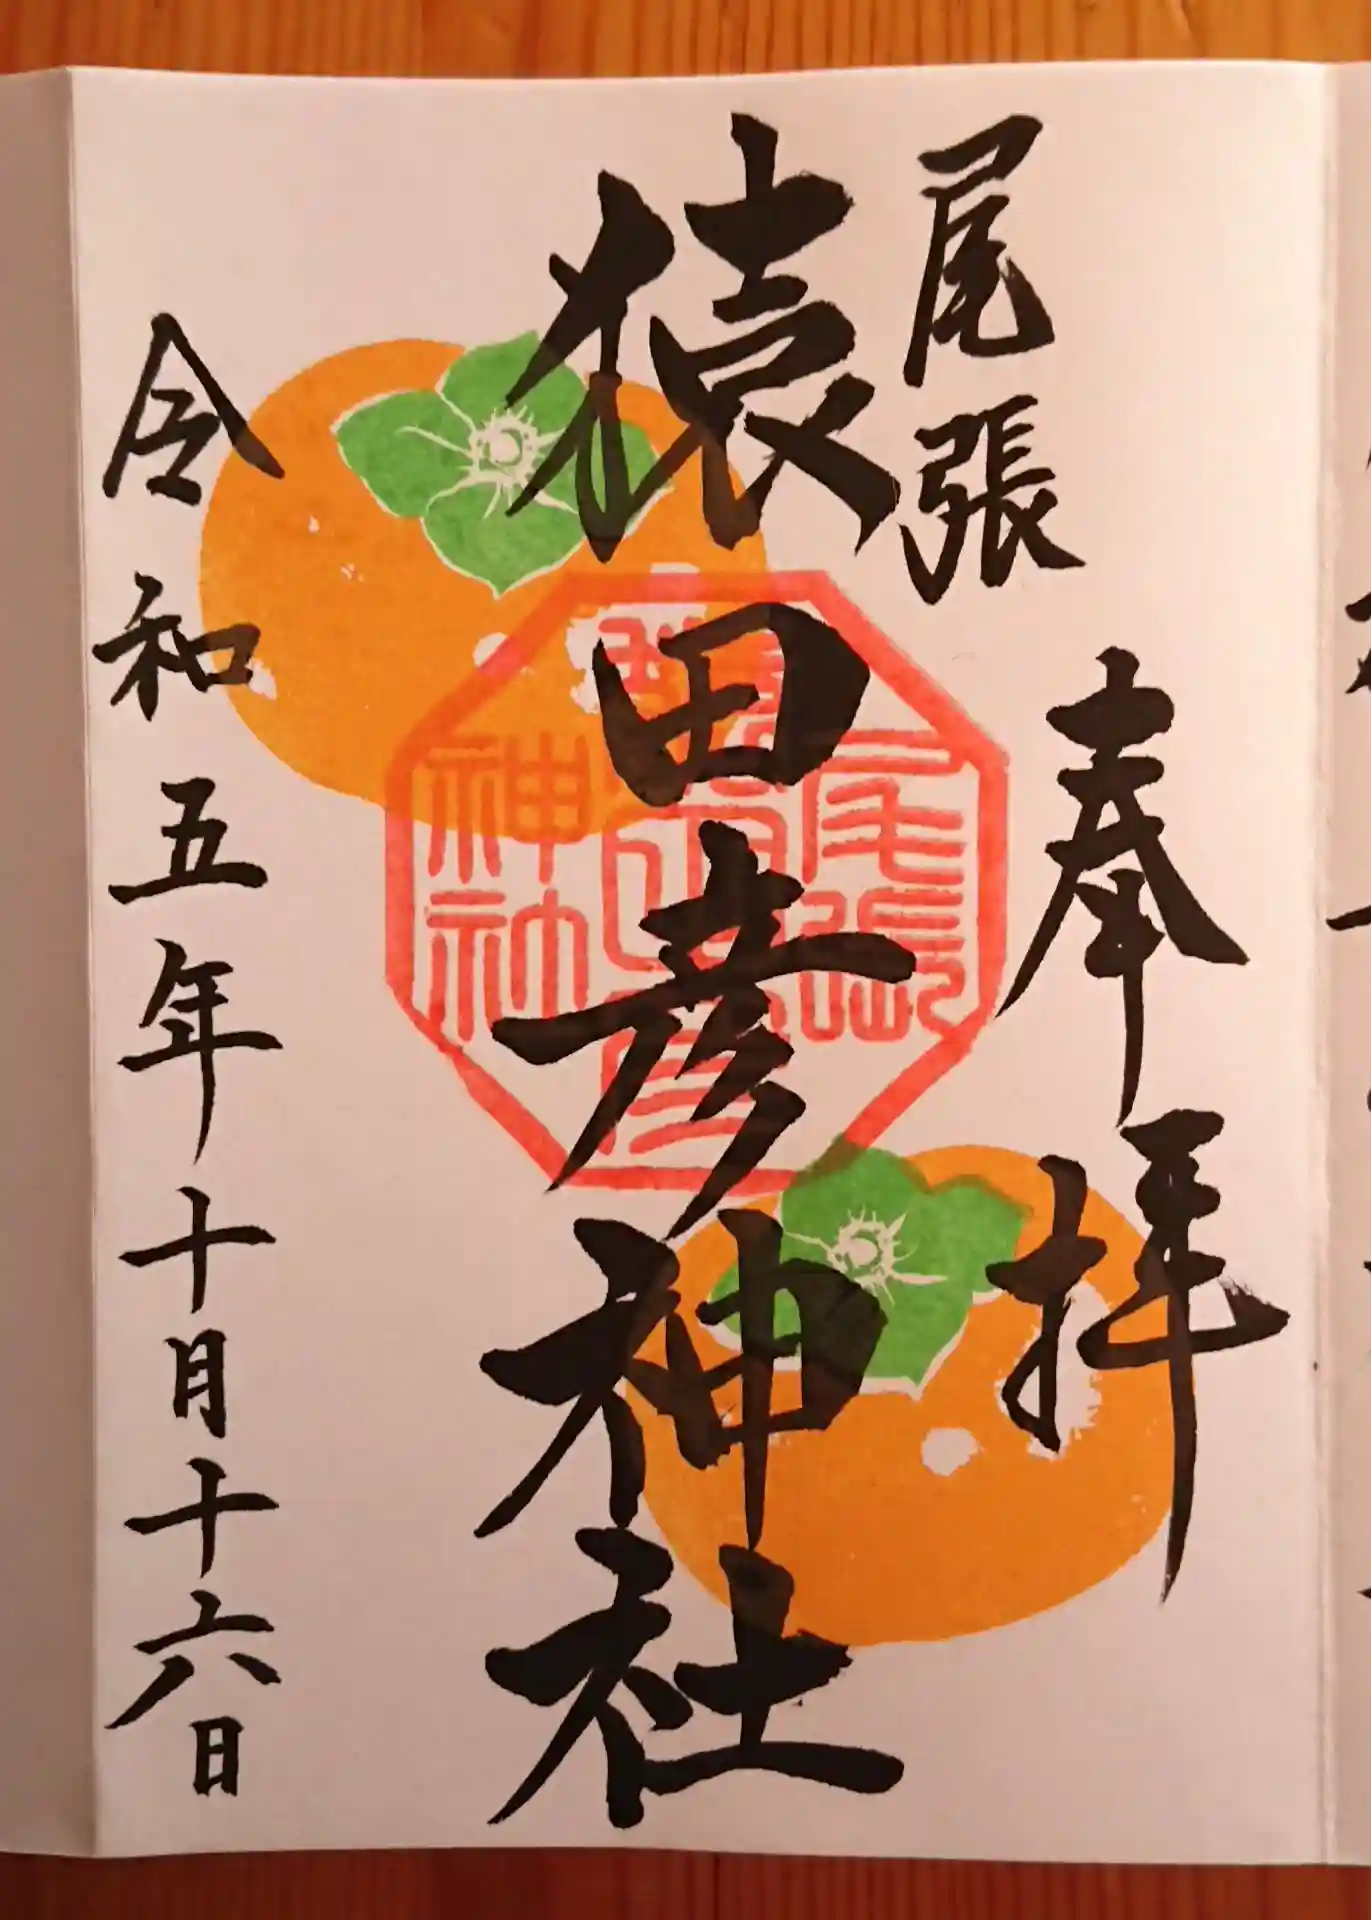 奉拝
尾張
猿田彦神社
尾張
猿田彦
神社
令和五年十月十六日